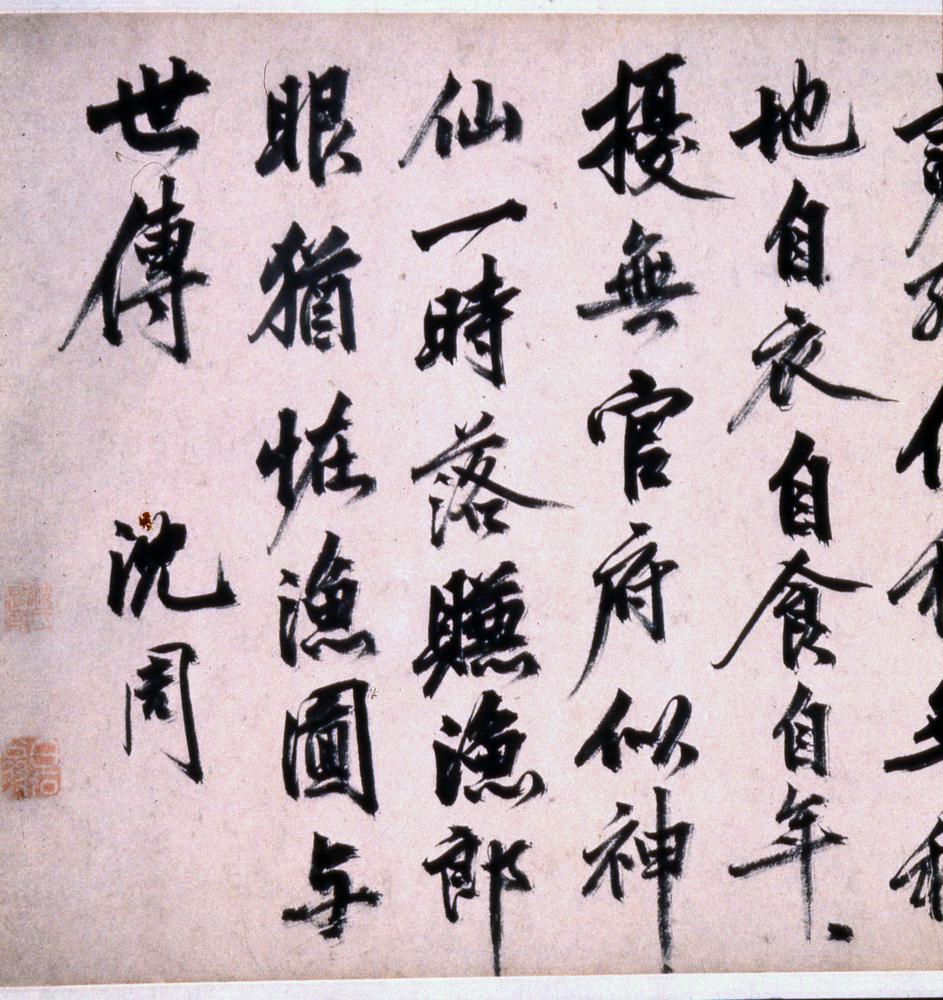 地自衣自食自年
擾無官府似神
仙一時落賺漁郎
眼猶恠漁圖与
世傳 沈周